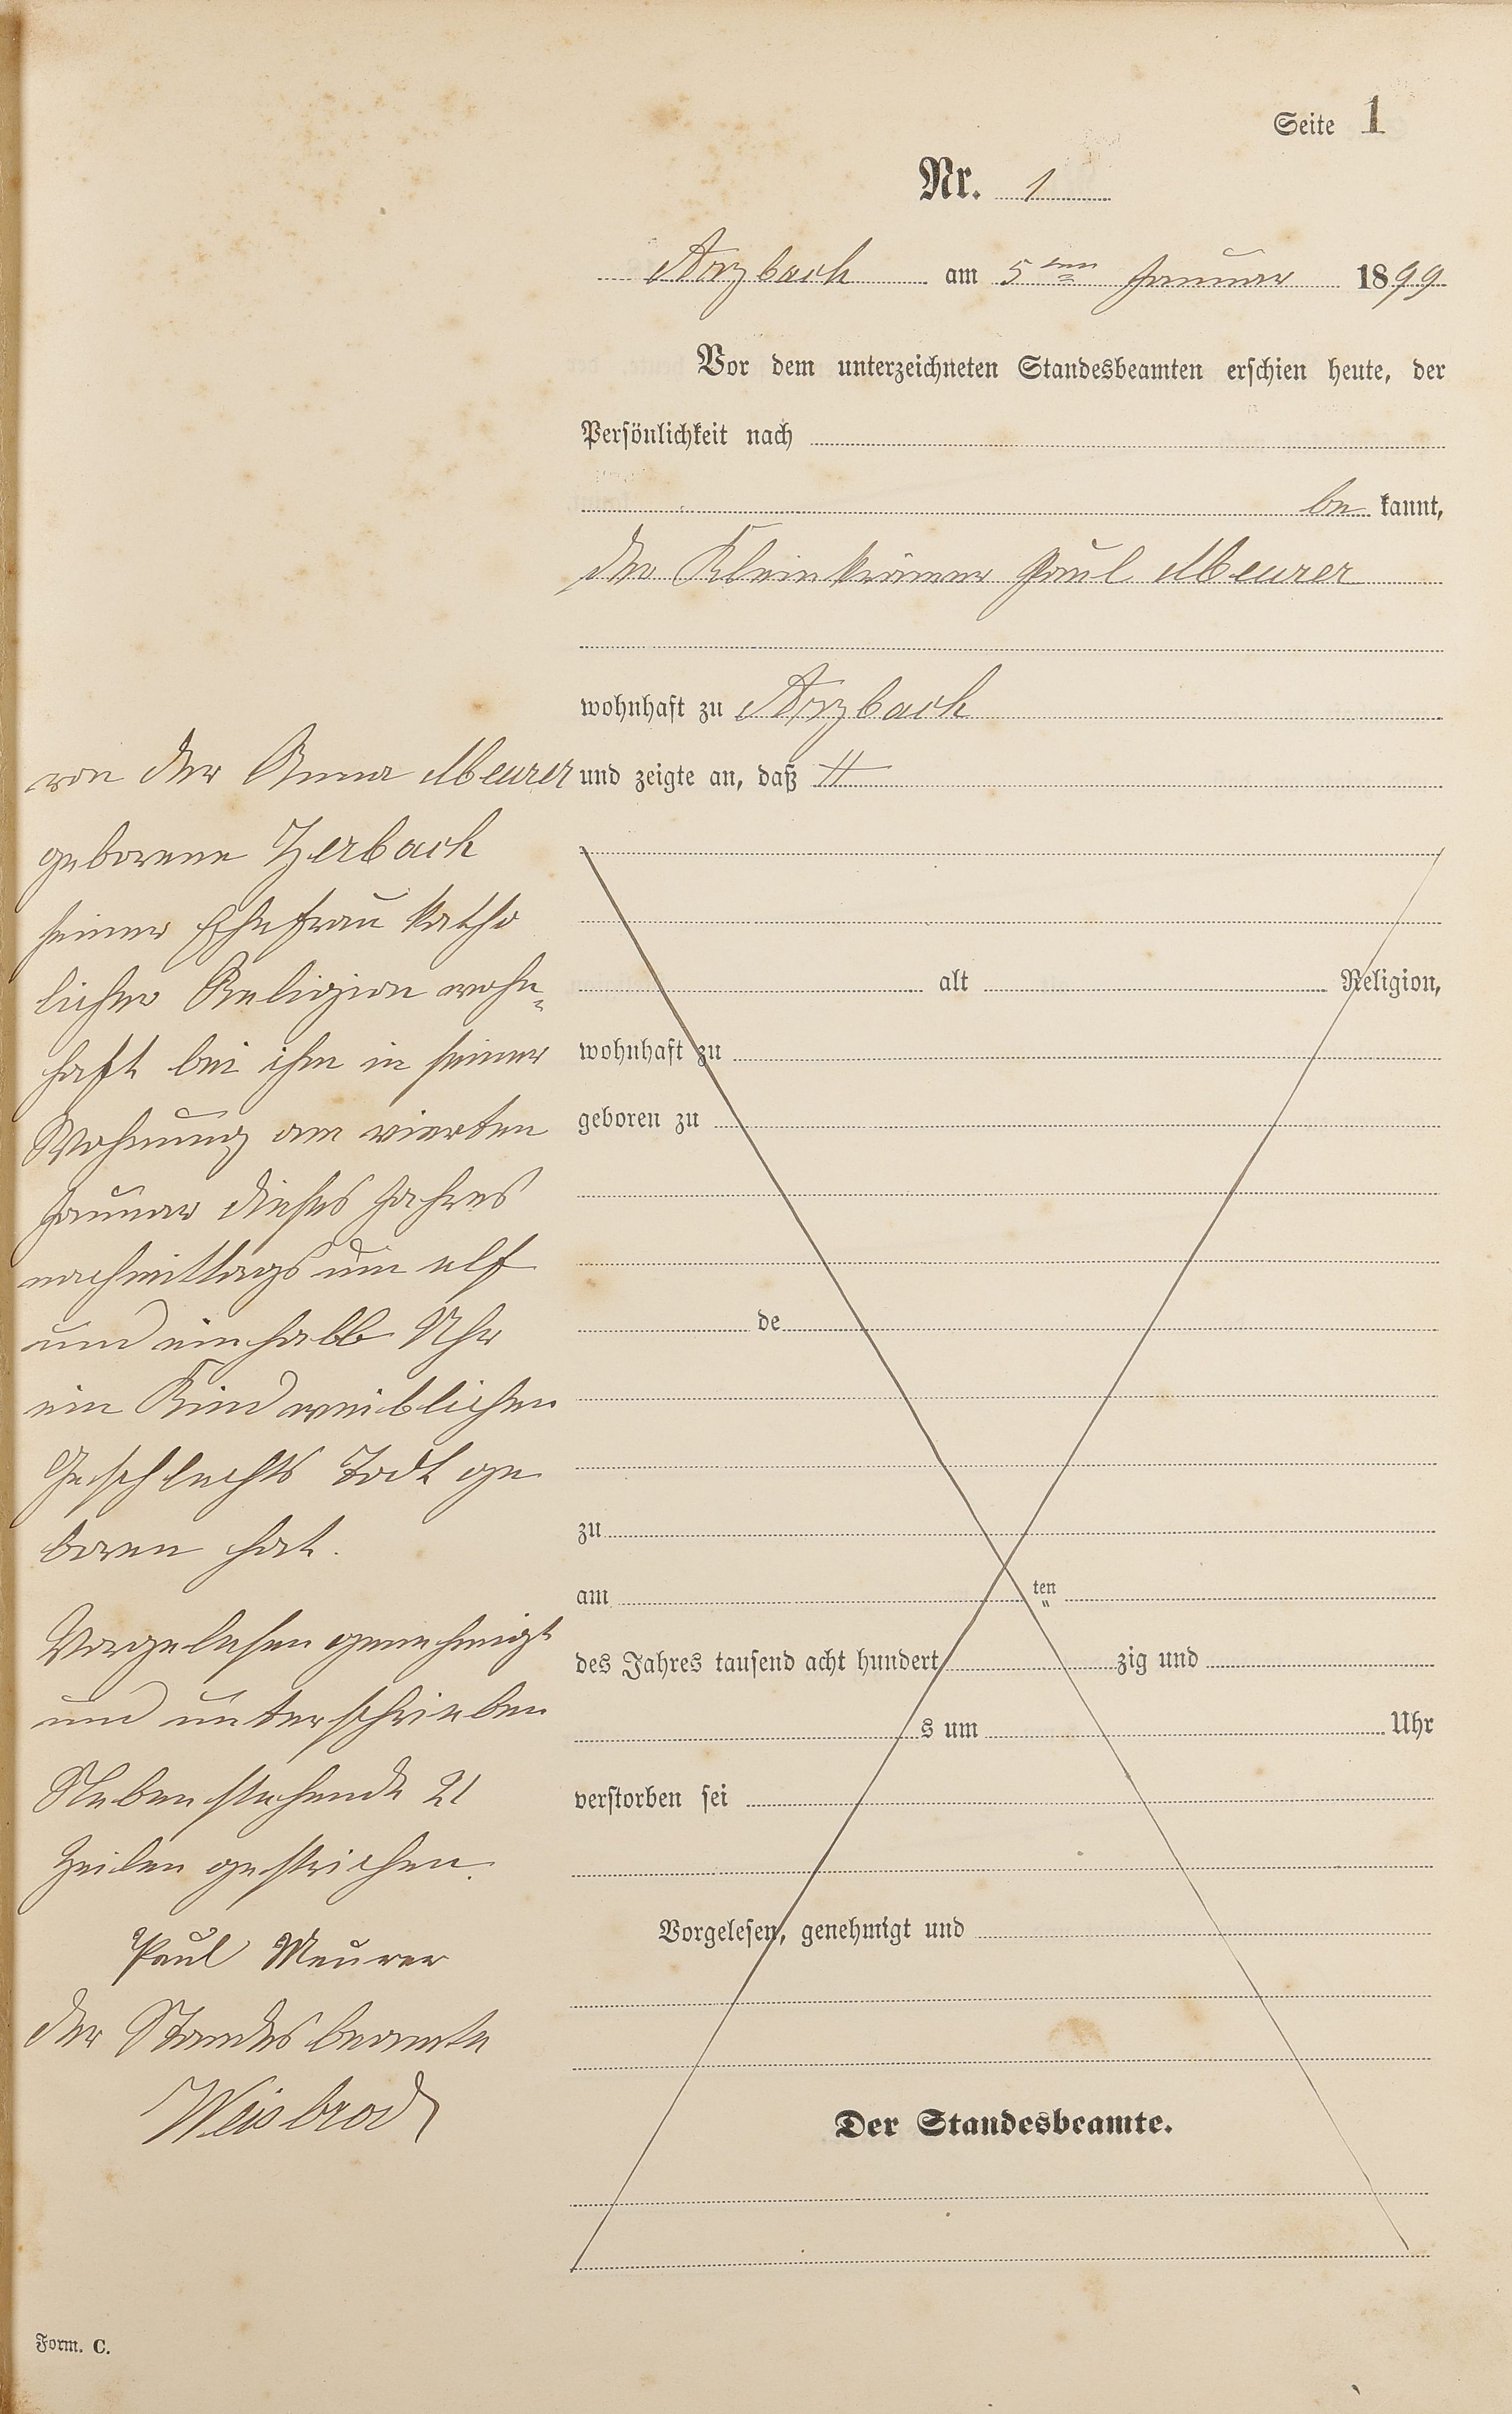 Seite 1
Nr. 1
Arzbach am 5ten Januar 1899
Vor dem unterzeichneten Standesbeamten erschien heute, der
Persönlichkeit nach
be kannt,
der Kleinkrämer Paul Meurer
wohnhaft zu Arzbach
und zeigte an, daß
von der Anna Meurer
geborene Zerbach
seiner Ehefrau katho
licher Religion wohn
haft bei ihm in seiner
Wohnung am vierten
Januar dieses Jahres
nachmittags um elf
und einhalb Uhr
ein Kind weiblichen
Geschlechts Todt ge
boren hat.
Vorgelesen genehmigt
und unterschrieben
Nebenstehende 21
Zeilen gestrichen.
Paul Meurer
der Standesbeamte
Weisbrod
alt Religion,
wohnhaft zu
geboren zu
de
zu
am ten
des Jahres tausend acht hundert zig und
s um Uhr
verstorben sei
Vorgelesen, genehmigt und
Der Standesbeamte.
Form. C.